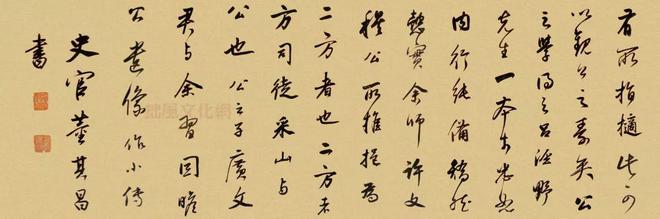 有所指摘此可
以觀公之素矣公
之學得之呂涇野
先生一本於
內行純備
慤實余師許文
穆公所雅推為
二方者也二方者
方司徒采山与
公也公之子廣文
君与余習因瞻
公遺像作小傳
史官董其昌
書
拙風文化網